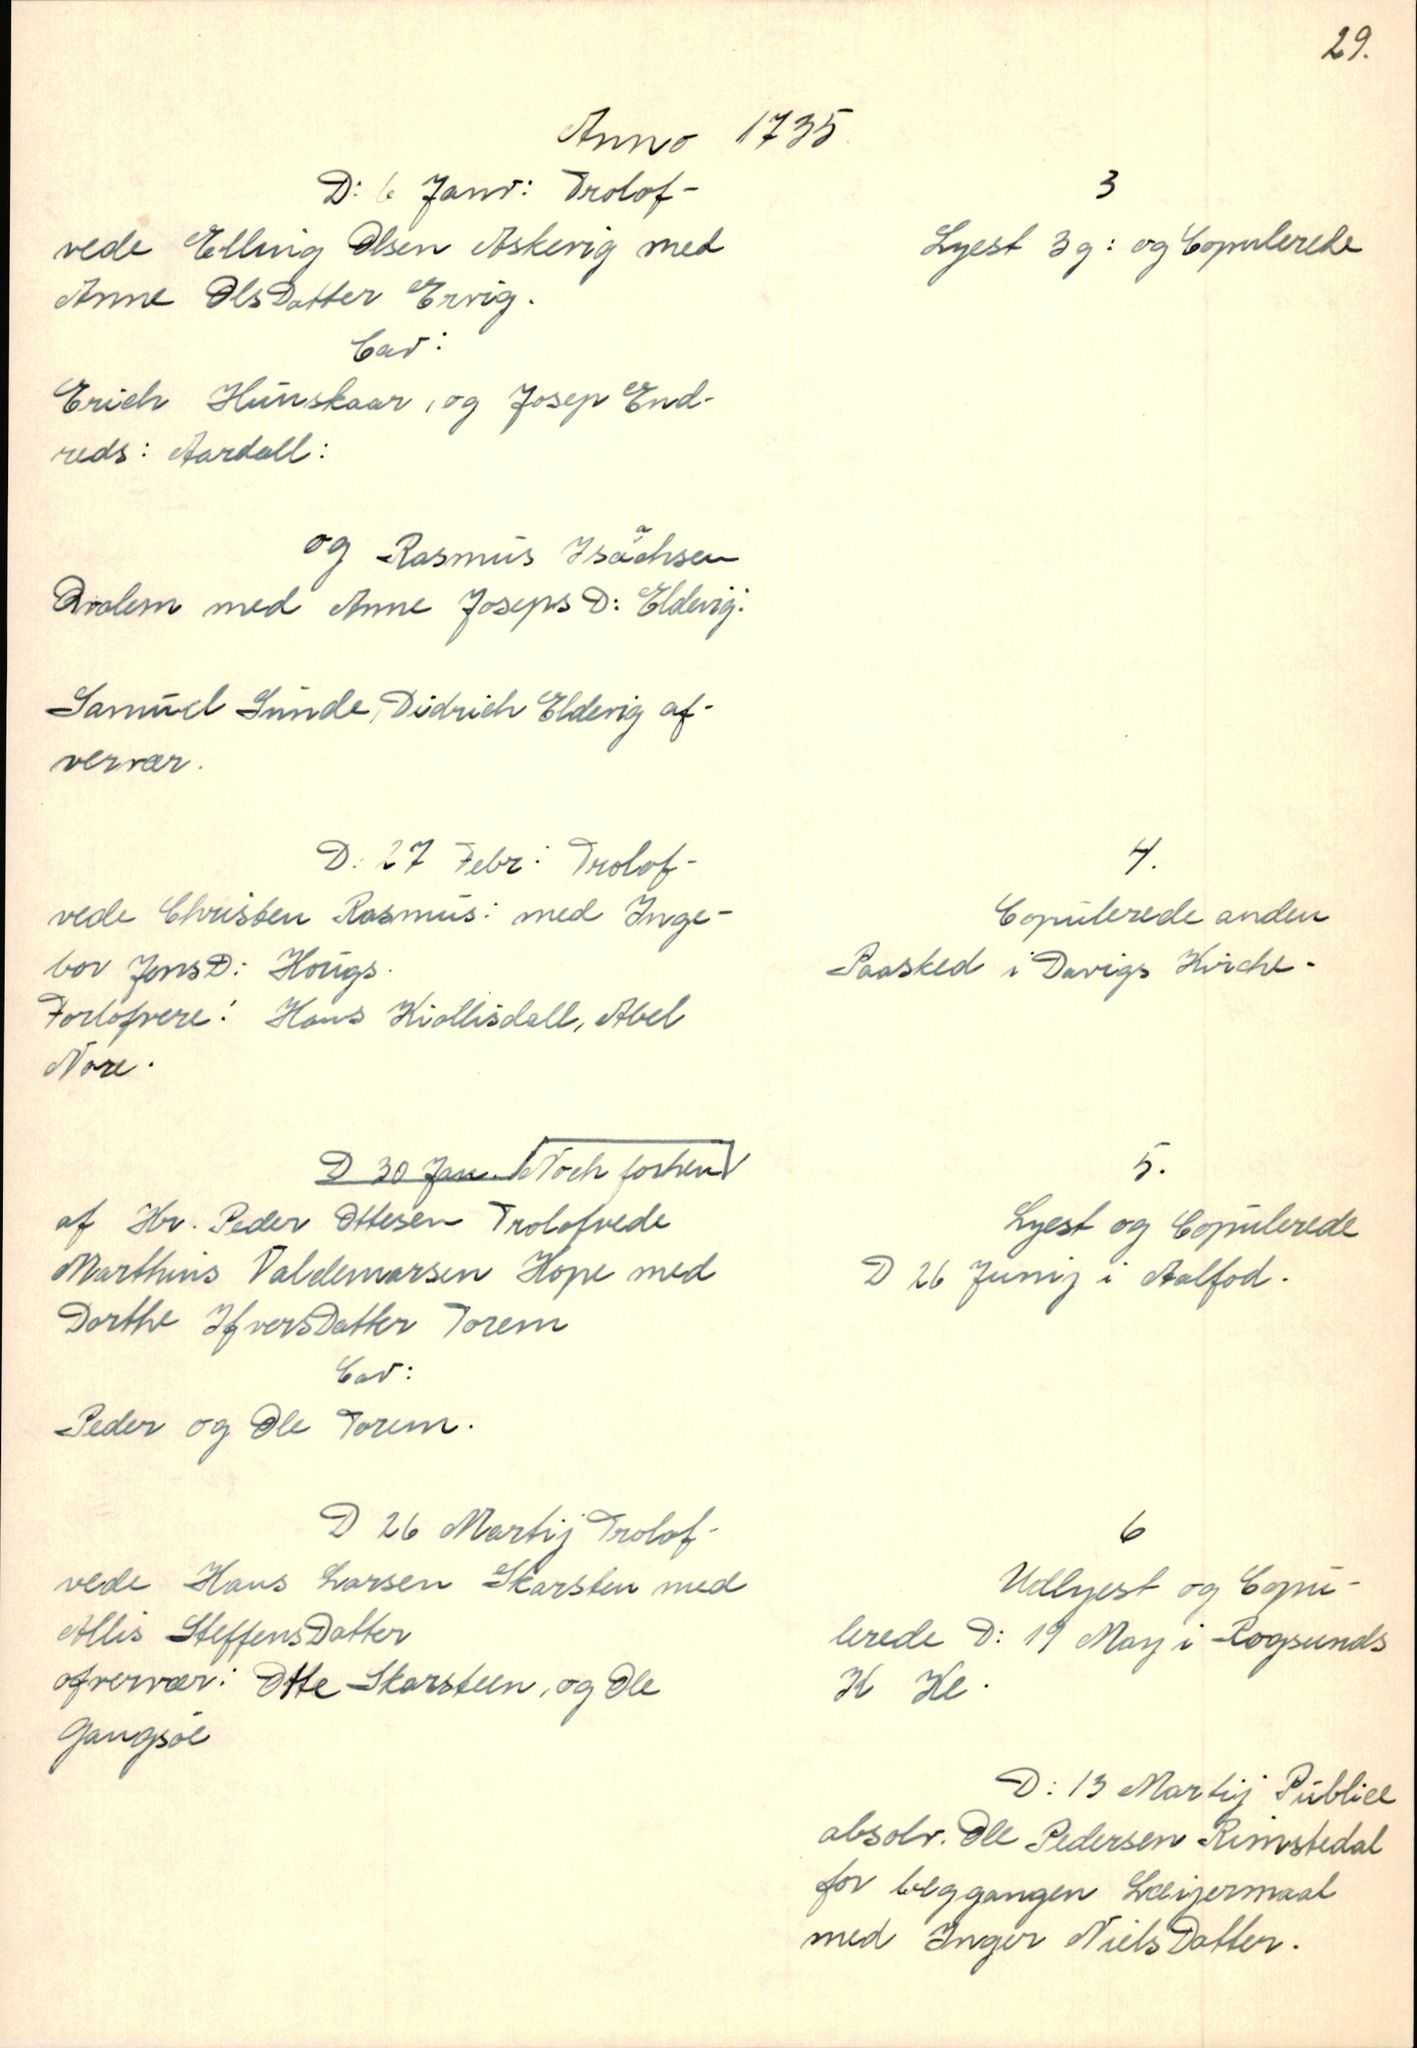 29.
Anno 1735
D: 6 Janv: Trolof-
vede Elling Olsen Askevig med
Anne OlsDatter Ervig.
Cav:
Erich Hunskaar, og Josep End-
reds: Aardall:
3
Lyest 3 g: og Copulerede
og Rasmus Isaachsen
Qvalem med Anne Joseps D: Eldevig:
Samuel Sunde, Didrich Eldevig af-
vervær.
D: 27 Febr: Trolof-
vede Christen Rasmus: med Inge-
bor JensD: Hougs.
Forlofvere: Hans Kiøllisdall, Abel
Nore.
4.
Copulerede anden
Paasked i Davigs Kirche.
D 30 Jan. Noch forhen
af Hr. Peder Ottesen Trolofvede
Marthinus Valdemarsen Hope med
Dorthe IfversDatter Torem
Cav:
Peder og Ole Torem.
5.
Lyest og Copulerede
D 26 Junij i Aalfod.
D 26 Martij Trolof-
vede Hans Larsen Skarsten med
Allis SteffensDatter
ofvervær: Otte Skarsteen, og Ole
Gangsöe
6
Udlyest og Copu-
lerede D: 19 May i Rogsunds
K Ke.
D: 13 Martij Publice
absolv. Ole Pedersen Rimstedal
for beggangen Leijermaal
med Inger NielsDatter.